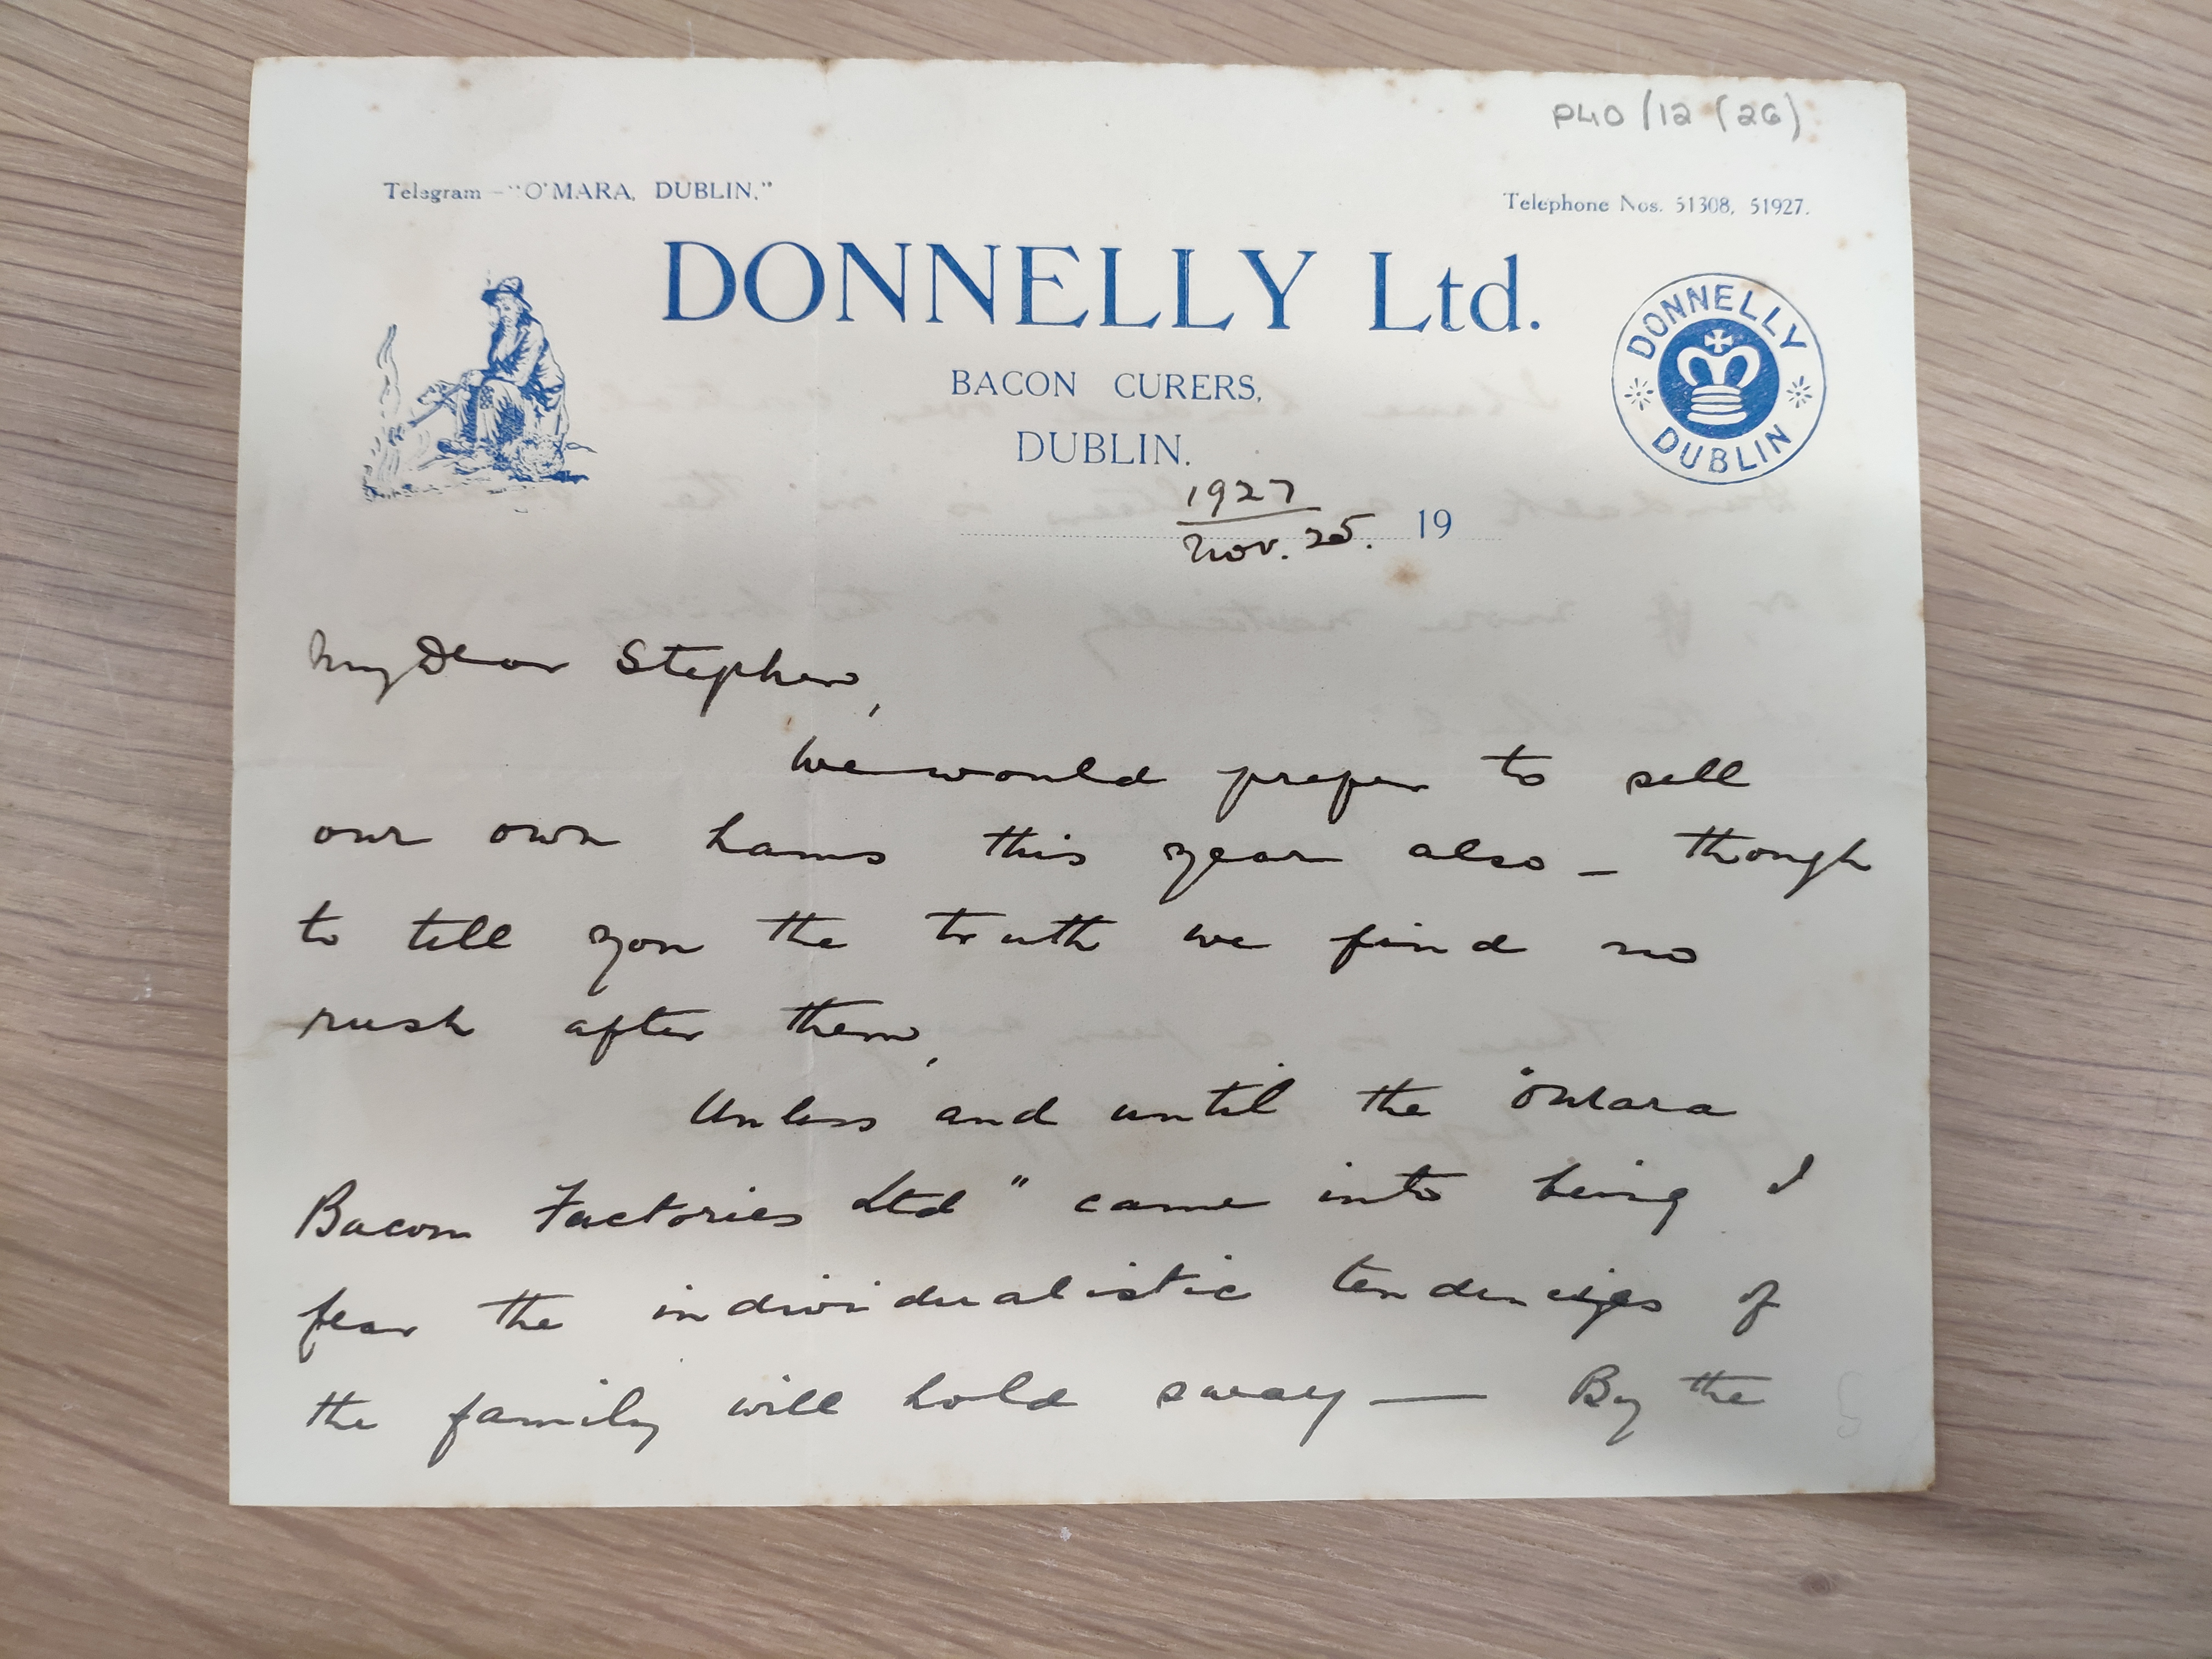 P40/12 (26)
Telegram - "O'MARA, DUBLIN."
Telephone Nos. 51308, 51927.
DONNELLY Ltd.
BACON CURERS,
DUBLIN.
DONNELLY
DUBLIN
1927
Nov. 25. 19
My Dear Stephen,
We would prefer to sell
our own hams this year also - though
to tell you the truth we find no
rush after them,
Unless and until the "OMara
Bacon Factories Ltd" came into being I
fear the individualistic tendencies of
the family will hold sway — By the